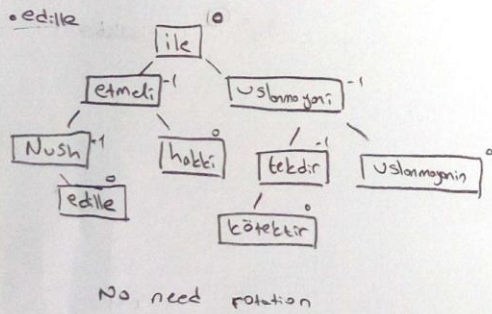 • edille
ile 0
etmeli -1 uslanmayani -1
Nush -1 hakki 0 tekdir -1 uslanmayanin 0
edille 0 kötektir 0
No need rotation